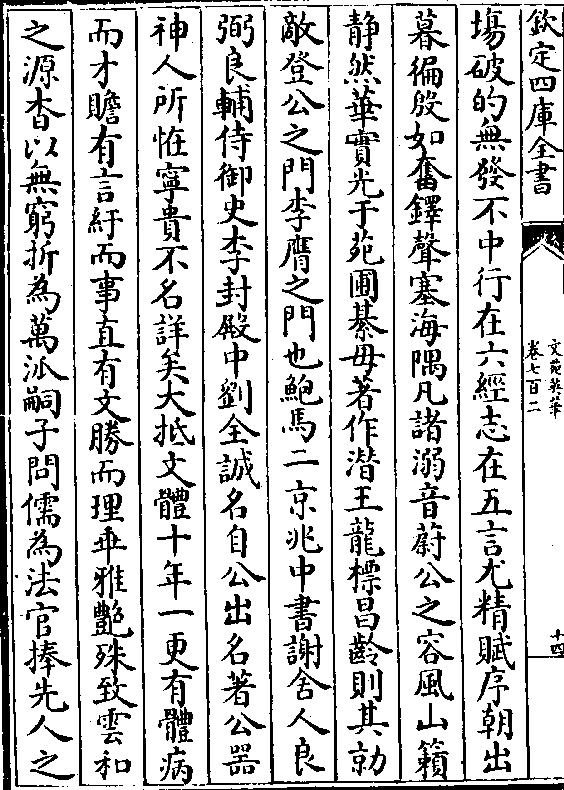 欽定四庫全書
文苑英華
卷七百二
十四
塲破的無發不中行在六經志在五言尤精賦序朝出
暮徧殷如奮鐸聲塞海隅凡諸溺音蔚公之容風山籟
静然華實光于苑圃綦毋著作潜王龍標昌齡則其勍
敵登公之門李膺之門也鮑馬二京兆中書謝舍人良
弼良輔侍御史李封殿中劉全誠名自公出名著公器
神人所恠寧貴不名詳矣大抵文體十年一更有體病
而才贍有言紆而事直有文勝而理乖雅艶殊致雲和
之源杳以無窮折為萬泒嗣子問儒為法官捧先人之